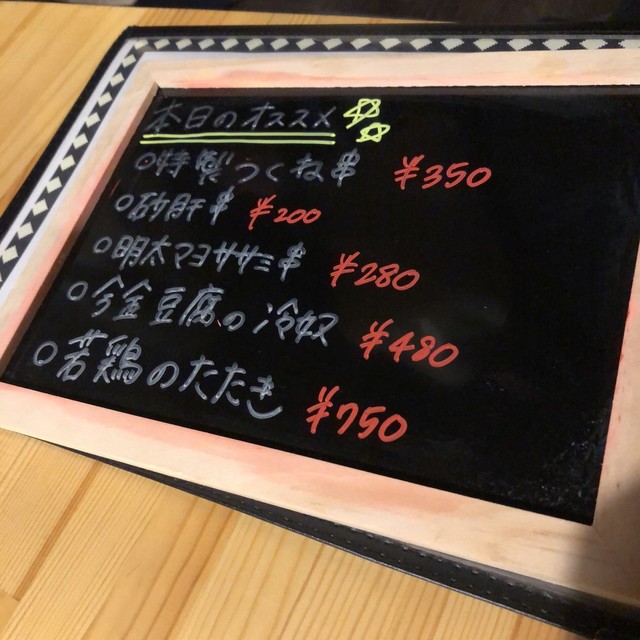 本日のオススメ
○特製つくね串 ¥350
○砂肝串 ¥200
○明太マヨササミ串 ¥280
○今金豆腐の冷奴 ¥480
○若鶏のたたき ¥750